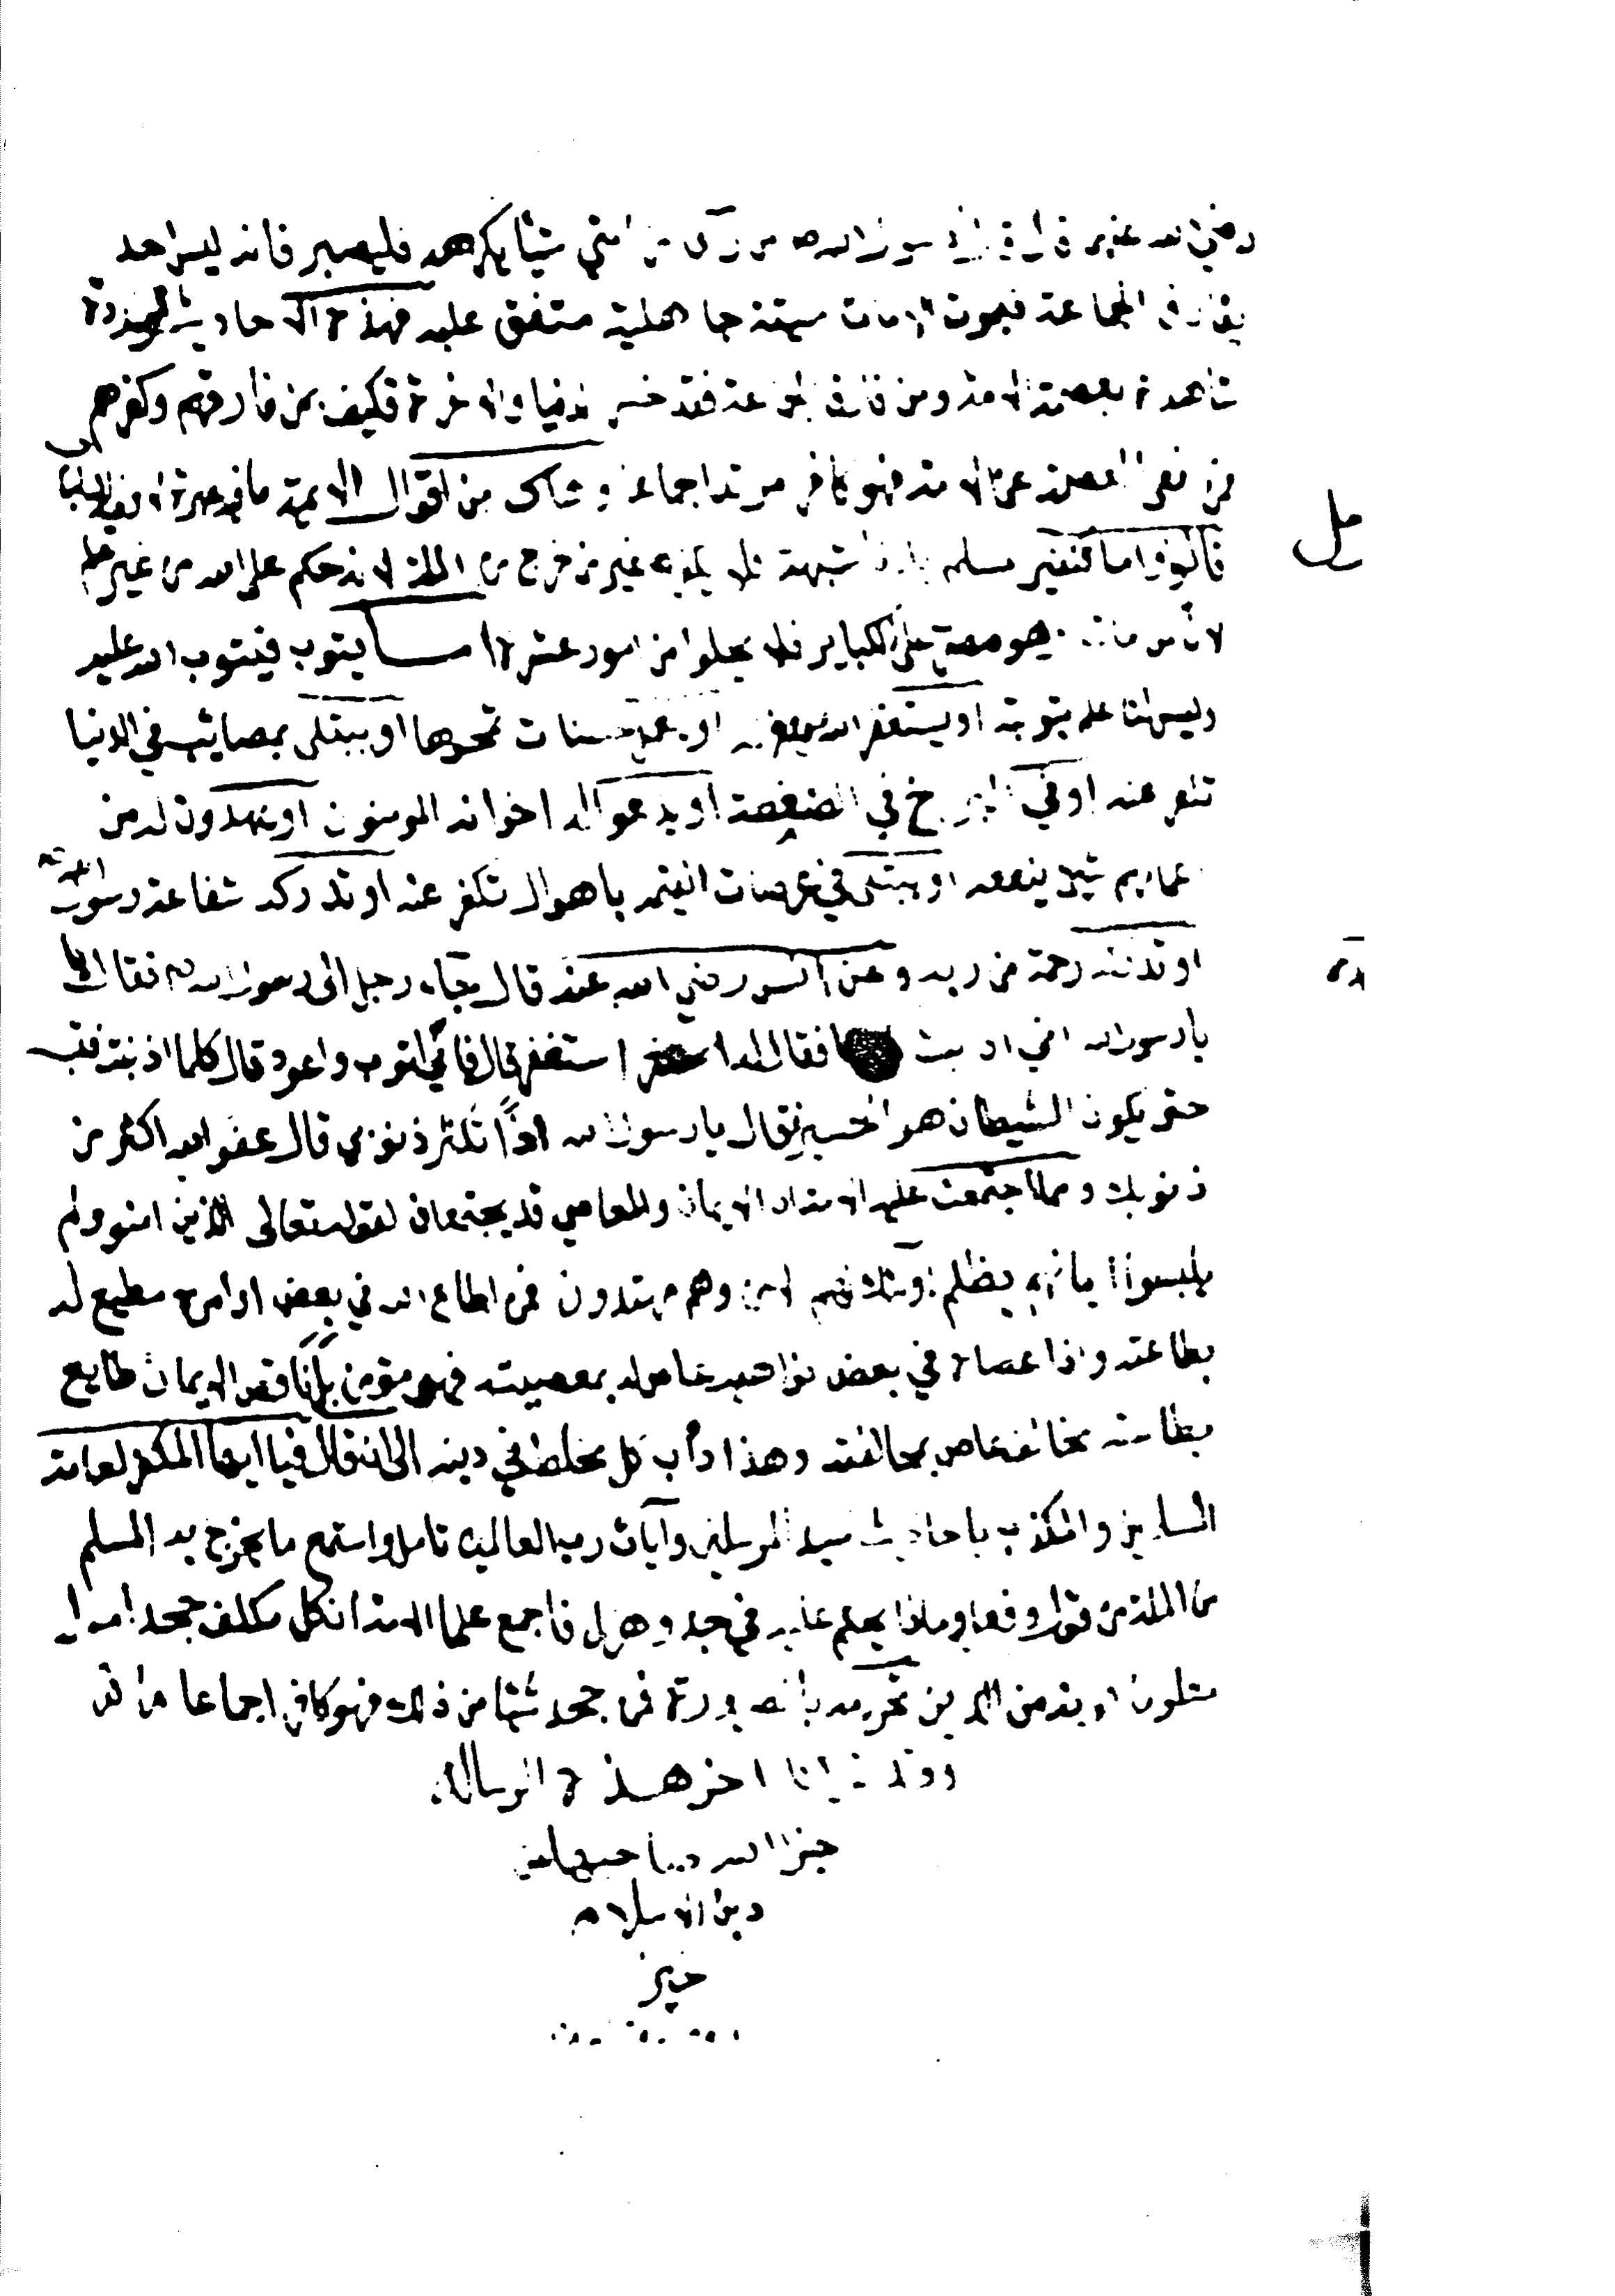 رضي الله عنهم قال قال رسول الله من رآى من امتي شيئا يكرهه فليصبر فانه ليس احد
يفارق الجماعة فيموت الا مات ميتة جاهلية متفق عليه فهذه الاحاديث
شاهدة بعصمة الامة ومن فارق الجماعة فقد خسر الدنيا والاخرة فكيف بمن فارقهم وكفرهم
فمن نفى العصمة عن الامة فهو كافر مرتد اجماعا وهاك من اقوال الايمة ما فيه عبرة
قالوا واما تكفير مسلم شبهة فلا يفوه غير من خرج من الملة لانه حكم على الله من غير علم
لان من مات وهو مصر على الكباير فلا يخلوا من امور عشرة اما يتوب فيتوب الله عليه
وليس لنا علم بتوبته او يستغفر الله فيغفر له او عمل حسنات تمحوها او يبتلى بمصائب في الدنيا
تكفر عنه او في البرزخ في الضغطة او يدعو اله اخوانه المومنون او يهدون له من
عملهم شيئ ينفعه او يبتلى في عرصات القيمه باهوال تكفر عنه او تدركه شفاعة رسول
او تدركه رحمة من ربه وعن انس رضي الله عنه قال جاء رجل الى رسول الله فقال
يارسول الله اني اذنبت فقال له استغفر قال فاني اتوب واعود قال كلما اذنبت فتب
حتى يكون الشيطان هو الخسير فقال يارسول الله اذًا تكثر ذنوبي قال عفو الله اكثر من
ذنوبك ومما اجتمعت عليه الامة ان الايمان والمعاصي قد يجتمعان لقوله تعالى الذين امنو ولم
يلبسوا ايمانهم بظلم اولئك لهم الامن وهم مهتدون فمن اطاع الله في بعض اوامره مطيع له
بطاعته واذا عصاه في بعض نواهيه عاص له بمعصيته فهو مؤمن ناقص الايمان طايع
بطاعته مخالف عاص بمخالفته وهذا دأب كل مخلط في دينه الى انتقال فيا ايها المكفر لعامة
المسلمين والمكذب باحاديث سيد المرسلين وآيات رب العالمين تامل واستمع ما يخرج به المسلم
من الملة من قول او فعل وماذا يحكم عليه في جد وهزل فاجمع علما الامة ان كل مكلف جحد امرا
معلوم انه من الدين تحريمه بالضرورة فمن جحد شيئا من ذلك فهو كافر اجماعا
اخر هذه الرسالة
جزا الله صاحبها عن
دين الاسلام
خير